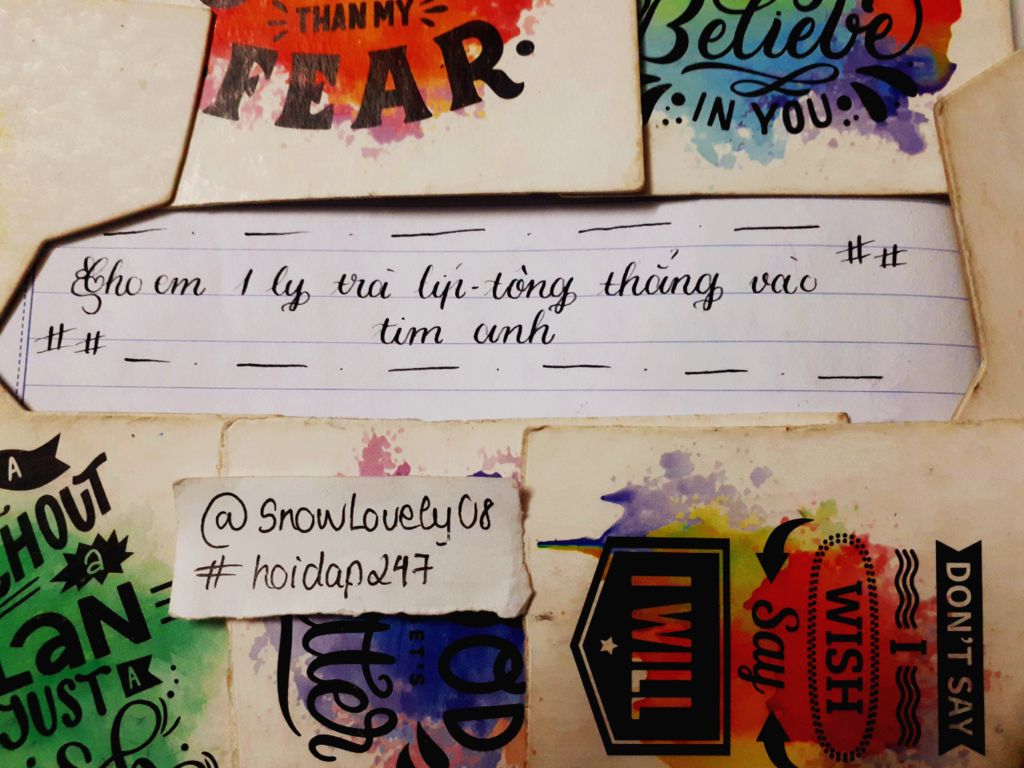 THAN MY
FEAR.
Believe
IN YOU
Cho em 1 ly trà líp-tòng thẳng vào
tim anh
##
##
@SnowLovely08
#hoidap247
A
a
LaN
JUST A
LET'S
DON'T SAY
I
WISH
Say
I WILL